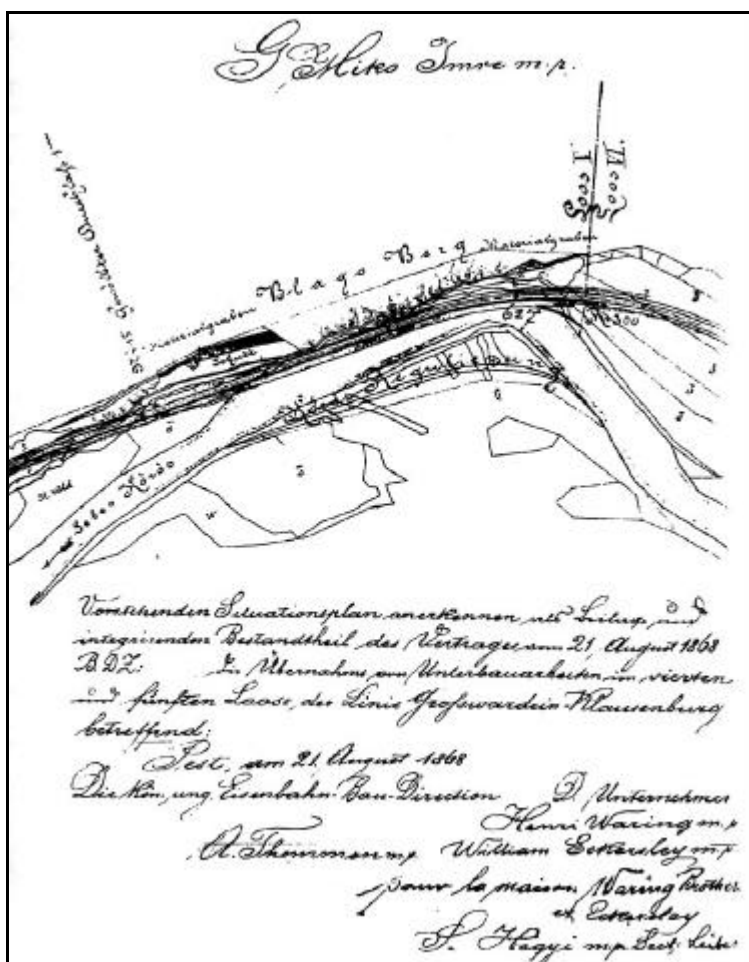 G. Miko Imre m. p.
II Loos
I Loos
Materialgraben
Blago Berg
Materialgraben
627
Sebes Körös
Körös Regulierung
Vorstehenden Situationsplan anerkennen als Beilage und
integrirenden Bestandtheil des Vertrages vom 21. August 1868
B.D.Z: die Übernahme von Unterbauarbeiten im vierten
und fünften Loose, der Linie Großwardein-Klausenburg
betreffend:
Pest, am 21. August 1868
Die kön. ung. Eisenbahn-Bau-Direction D. Unternehmer
Henri Waring m. p.
A. Thommen m. p. William Eckersley m. p.
pour la maison Waring Brother
et Eckersley
S. Hagyi m. p. Sect. Leiter